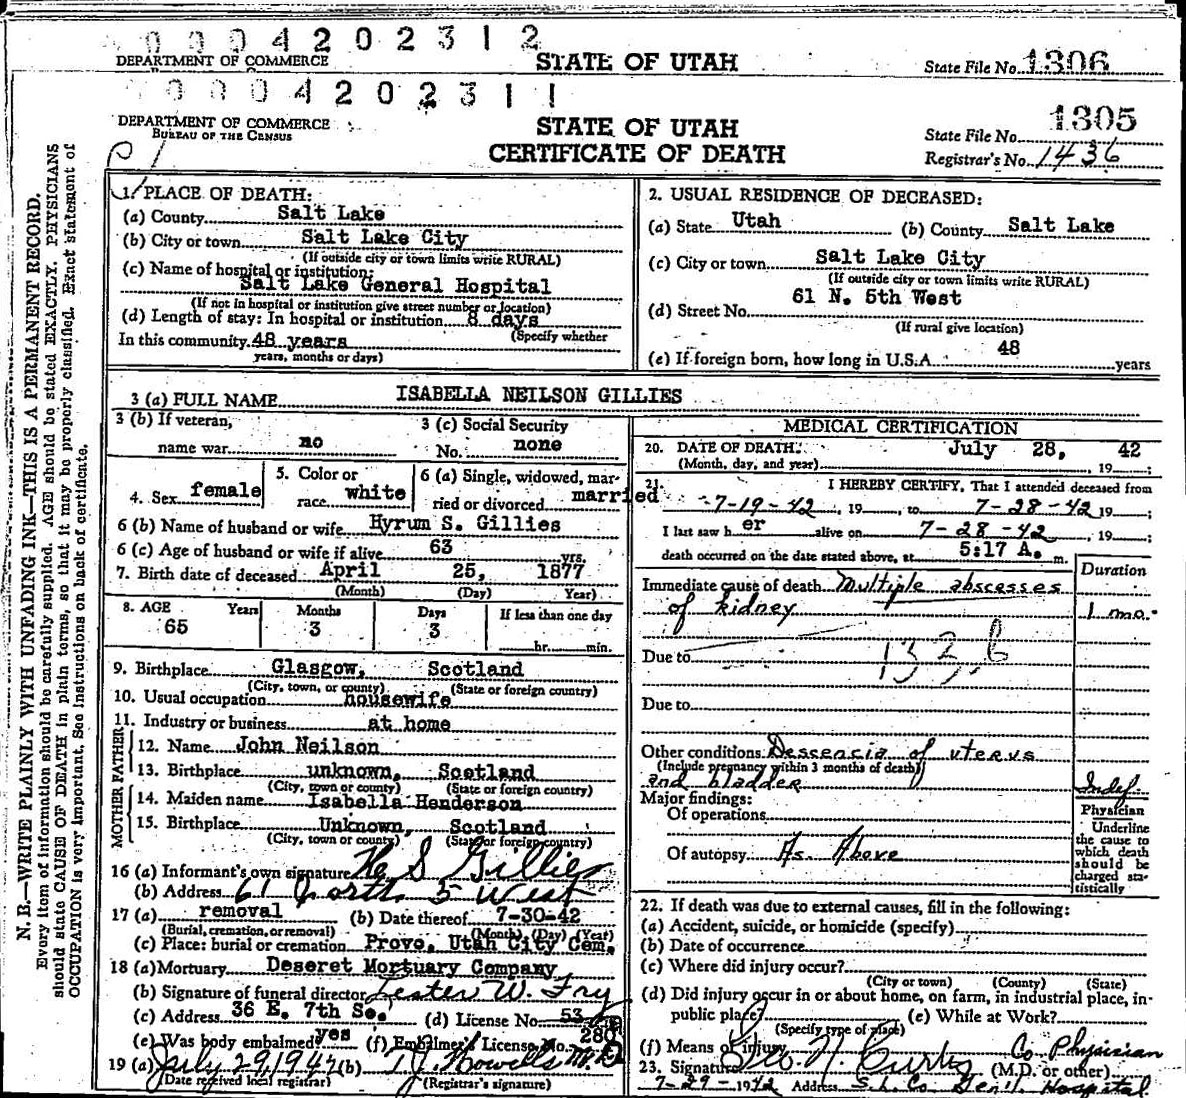 0004202312
DEPARTMENT OF COMMERCE
STATE OF UTAH
State File No. 1306
0004202311
DEPARTMENT OF COMMERCE
BUREAU OF THE CENSUS
STATE OF UTAH
CERTIFICATE OF DEATH
State File No. 1305
Registrar's No. 1436
N. B.—WRITE PLAINLY WITH UNFADING INK—THIS IS A PERMANENT RECORD.
Every item of information should be carefully supplied. AGE should be stated EXACTLY. PHYSICIANS
should state CAUSE OF DEATH in plain terms, so that it may be properly classified. Exact statement of
OCCUPATION is very important. See instructions on back of certificate.
1. PLACE OF DEATH:
(a) County Salt Lake
(b) City or town Salt Lake City
(If outside city or town limits write RURAL)
(c) Name of hospital or institution:
Salt Lake General Hospital
(If not in hospital or institution give street number or location)
(d) Length of stay: In hospital or institution 8 days
(Specify whether
In this community 48 years
years, months or days)
2. USUAL RESIDENCE OF DECEASED:
(a) State Utah (b) County Salt Lake
(c) City or town Salt Lake City
(If outside city or town limits write RURAL)
(d) Street No. 61 N. 5th West
(If rural give location)
(e) If foreign born, how long in U.S.A. 48 years
3 (a) FULL NAME ISABELLA NEILSON GILLIES
3 (b) If veteran,
name war no
3 (c) Social Security
No. none
4. Sex female
5. Color or
race white
6 (a) Single, widowed, mar-
ried or divorced married
6 (b) Name of husband or wife Hyrum S. Gillies
6 (c) Age of husband or wife if alive 63 yrs.
7. Birth date of deceased April 25, 1877
(Month) (Day) Year)
8. AGE Years Months Days If less than one day
65 3 3 hr. min.
9. Birthplace Glasgow, Scotland
(City, town, or county) (State or foreign country)
10. Usual occupation housewife
11. Industry or business at home
FATHER
12. Name John Neilson
13. Birthplace unknown, Scotland
(City, town or county) (State or foreign country)
MOTHER
14. Maiden name Isabella Henderson
15. Birthplace Unknown, Scotland
(City, town or county) (State or foreign country)
16 (a) Informant's own signature H S Gillies
(b) Address 61 North 5 West
17 (a) removal (b) Date thereof 7-30-42
(Burial, cremation, or removal) (Month) (Day) (Year)
(c) Place: burial or cremation Provo, Utah City Cem.
18 (a) Mortuary Deseret Mortuary Company
(b) Signature of funeral director Lester W. Fry
(c) Address 36 E. 7th So. (d) License No. 53
(e) Was body embalmed? yes (f) Embalmer's License No. 280
19 (a) July 29, 1942 (b) T J Howells M.D
(Date received local registrar) (Registrar's signature)
MEDICAL CERTIFICATION
20. DATE OF DEATH: July 28, 42
(Month, day, and year) , 19 ;
21. I HEREBY CERTIFY, That I attended deceased from
7-19-42, 19 , to 7-28-42 19 ;
I last saw h er alive on 7-28-42, 19 ;
death occurred on the date stated above, at 5:17 A. m.
Duration
Immediate cause of death Multiple abscesses
of kidney 1 mo.
Due to
Due to
Other conditions Descencia of uterus
(Include pregnancy within 3 months of death)
and bladder Indef.
Major findings:
Of operations
Of autopsy As Above
Physician
Underline
the cause to
which death
should be
charged sta-
tistically
22. If death was due to external causes, fill in the following:
(a) Accident, suicide, or homicide (specify)
(b) Date of occurrence
(c) Where did injury occur?
(City or town) (County) (State)
(d) Did injury occur in or about home, on farm, in industrial place, in-
public place? (e) While at Work?
(Specify type of place)
(f) Means of injury Co Physician
23. Signature Geo N Curtis (M.D. or other)
7-29-1942 Address S.L. Co. Gen'l. Hospital